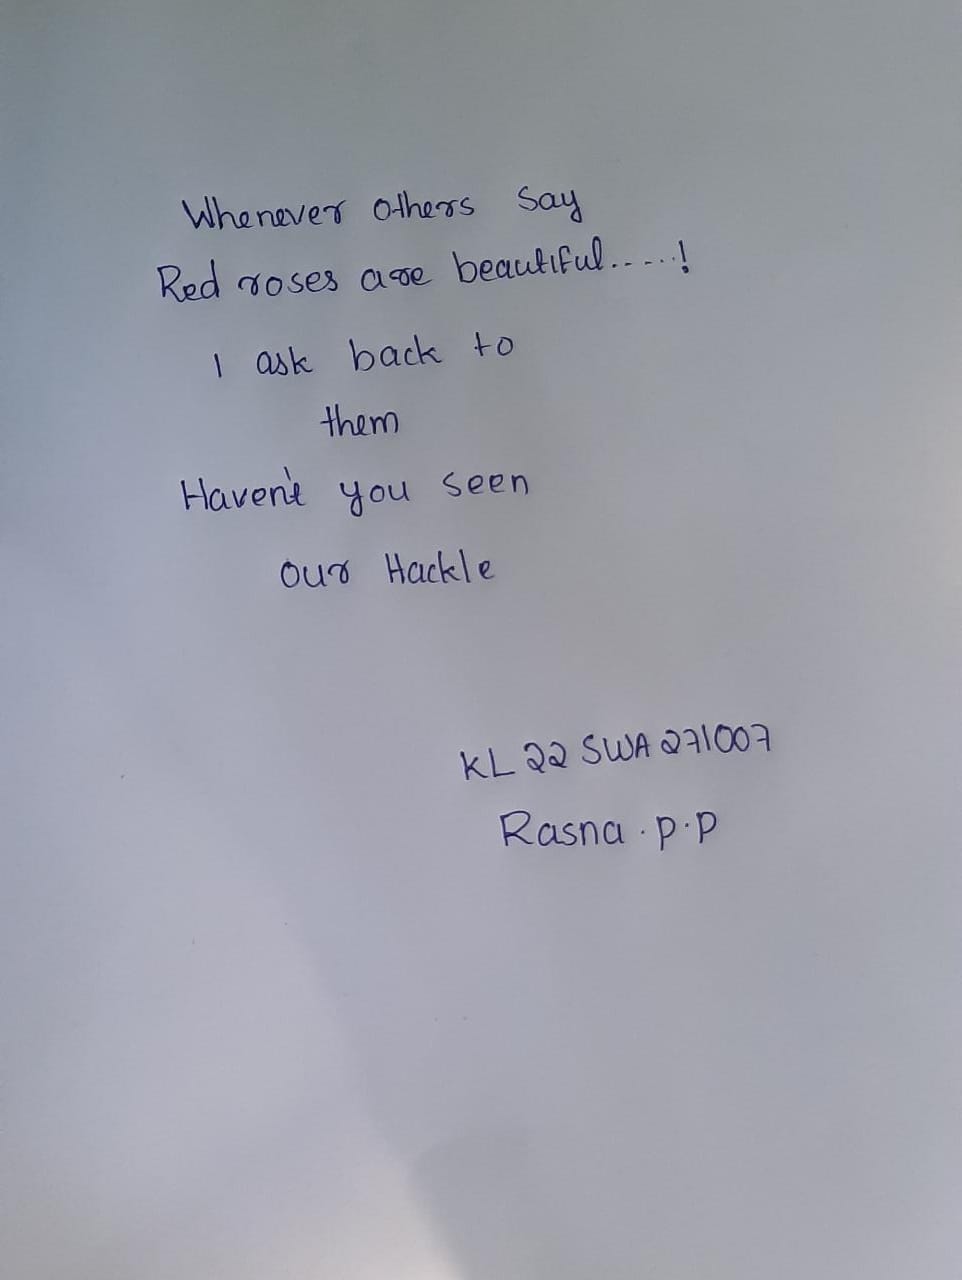 Whenever others say
Red roses are beautiful.....!
I ask back to
them
Haven't you seen
our Hackle
KL 22 SWA 271007
Rasna . p.p